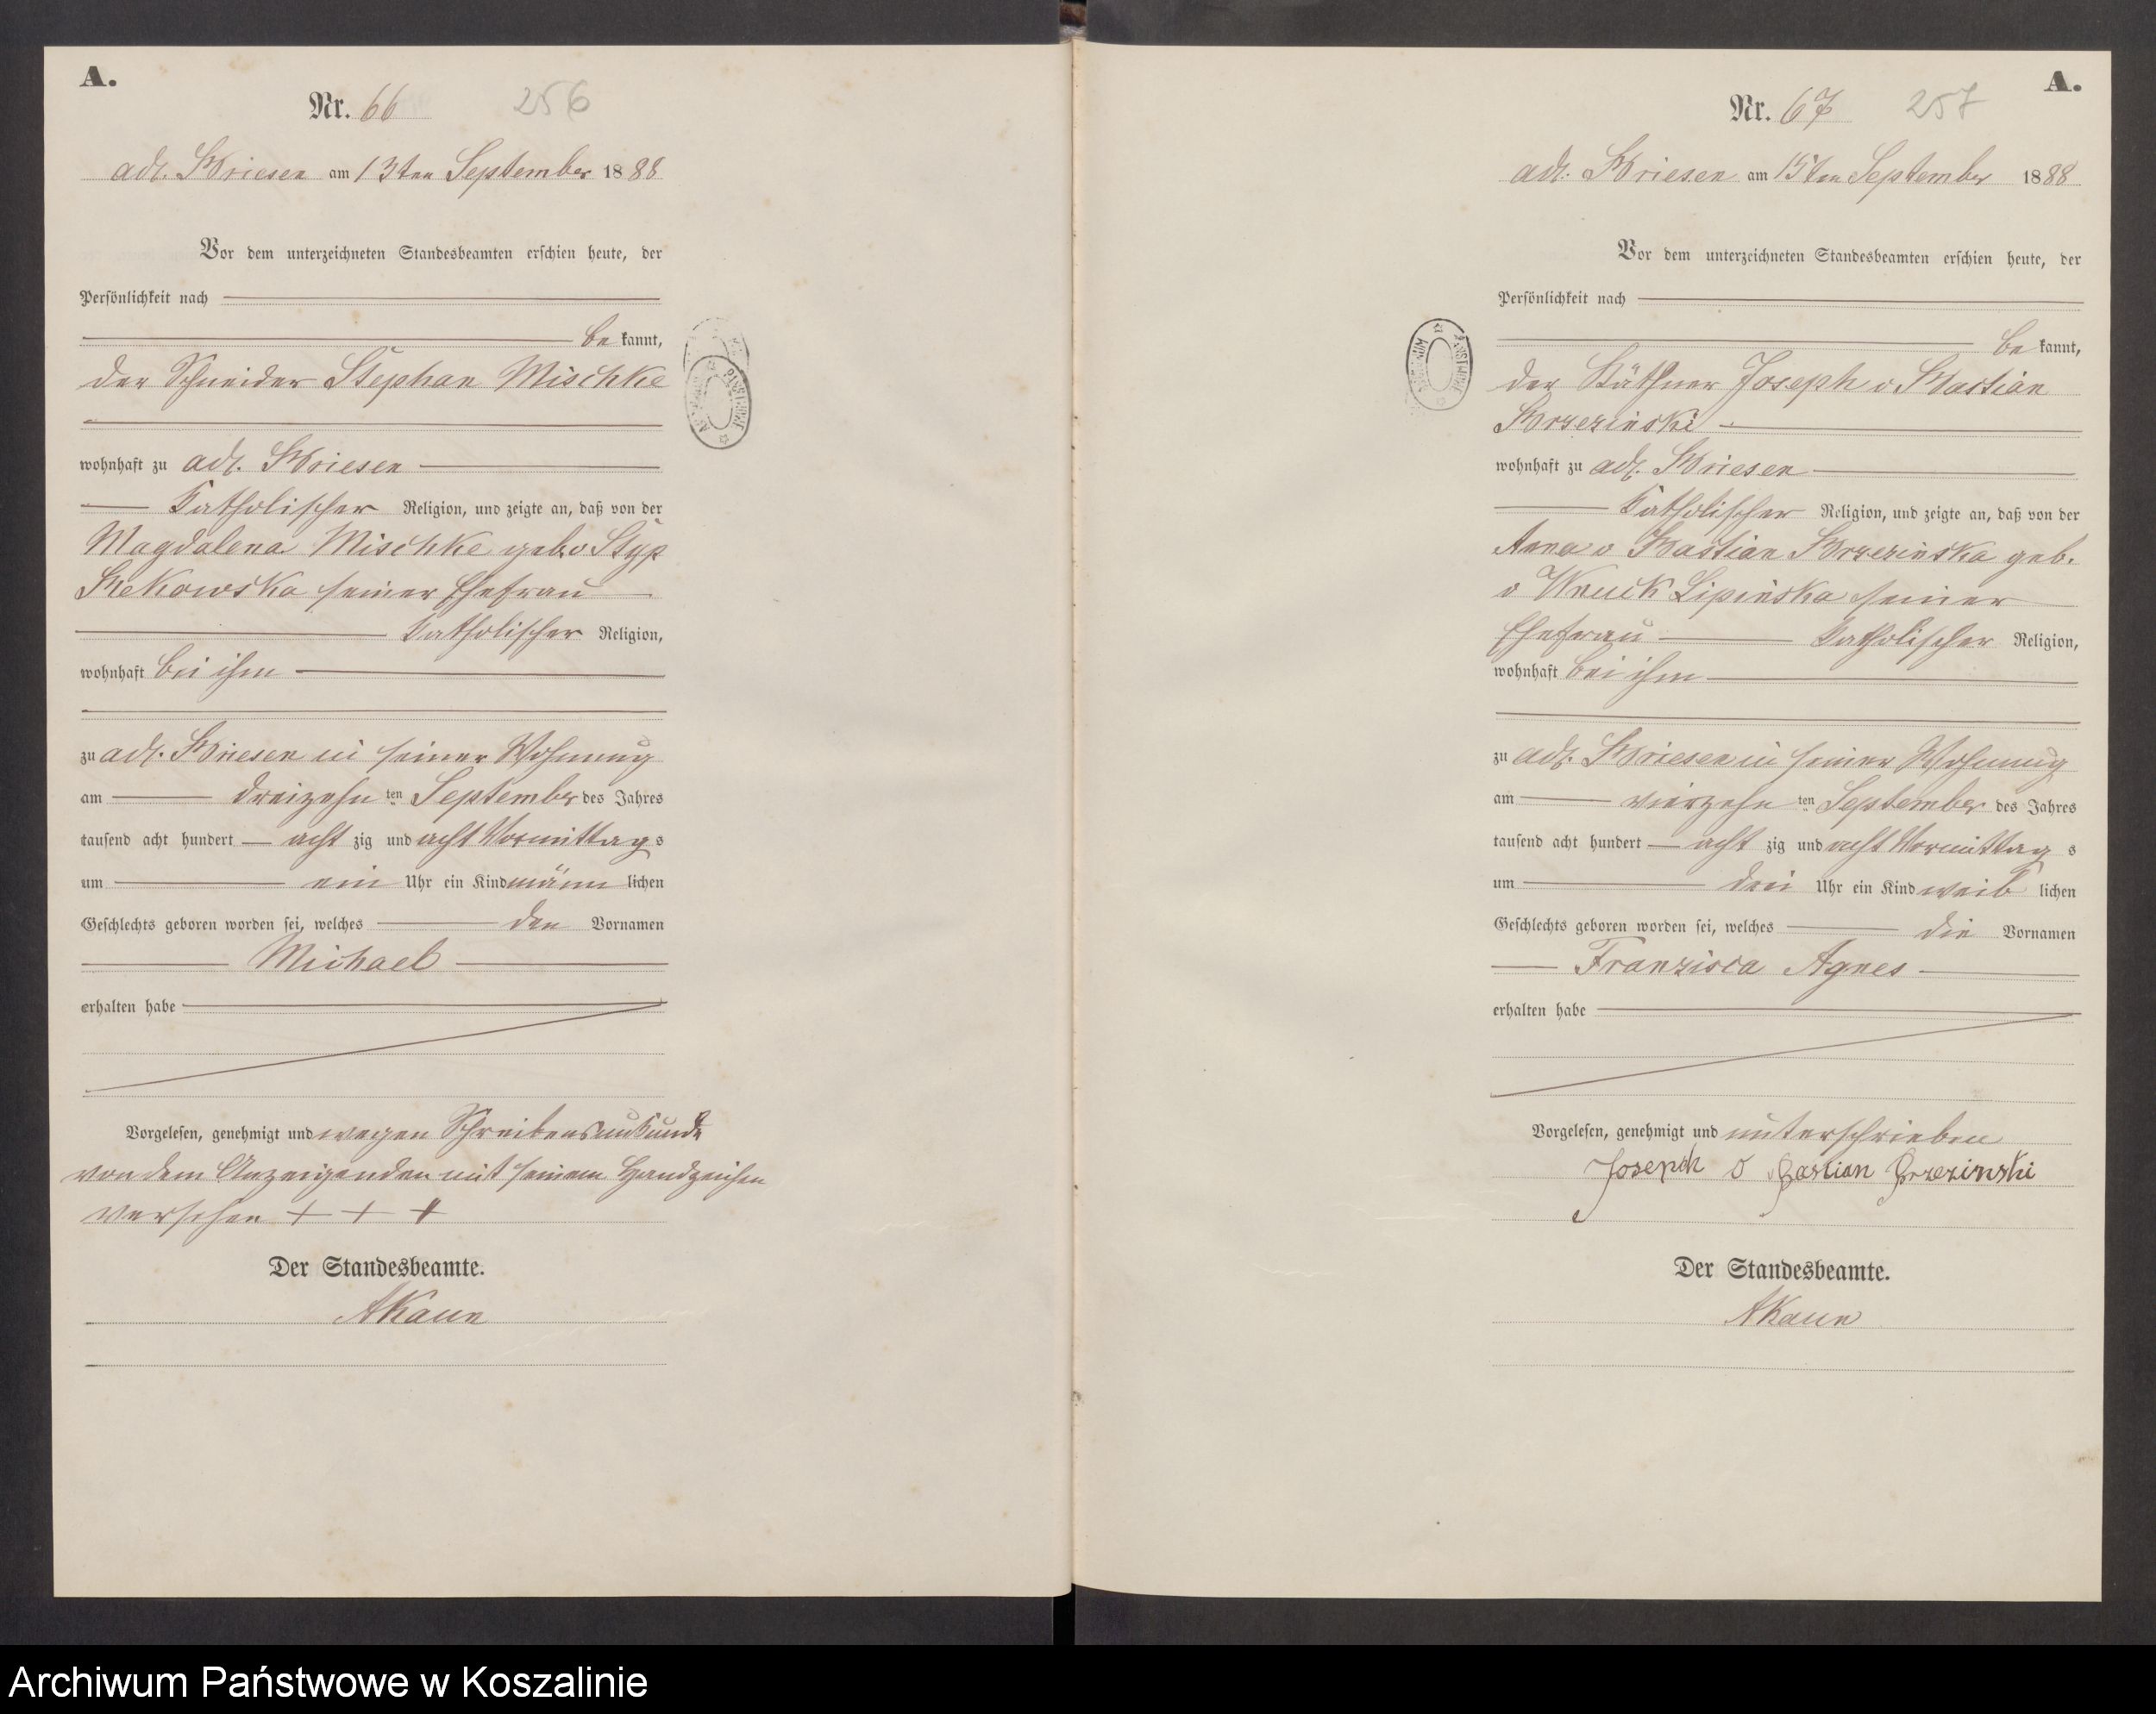 A.
Nr. 66
256
adl. Briesen am 13ten September 1888
Vor dem unterzeichneten Standesbeamten erschien heute, der
Persönlichkeit nach
be kannt,
der Schneider Stephan Mischke
wohnhaft zu adl. Briesen
Katholischer Religion, und zeigte an, daß von der
Magdalena Mischke geb. v Styp
Rekowska seiner Ehefrau
Katholischer Religion,
wohnhaft bei ihm
zu adl. Briesen in seiner Wohnung
am dreizehn ten September des Jahres
tausend acht hundert acht zig und acht Vormittag s
um ein Uhr ein Kind männ lichen
Geschlechts geboren worden sei, welches den Vornamen
Michael
erhalten habe
Vorgelesen, genehmigt und wegen Schreibensunkunde
von dem Anzeigenden mit seinem Handzeichen
versehen + + +
Der Standesbeamte.
AKaun
A.
Nr. 67
257
adl. Briesen am 15ten September 1888
Vor dem unterzeichneten Standesbeamten erschien heute, der
Persönlichkeit nach
be kannt,
der Käthner Joseph v Bastian
Brzezinski
wohnhaft zu adl. Briesen
Katholischer Religion, und zeigte an, daß von der
Anna v Bastian Brzezinska geb.
v Wnuck Lipinska seiner
Ehefrau Katholischer Religion,
wohnhaft bei ihm
zu adl. Briesen in seiner Wohnung
am vierzehn ten September des Jahres
tausend acht hundert acht zig und acht Vormittag s
um drei Uhr ein Kind weib lichen
Geschlechts geboren worden sei, welches die Vornamen
Franzisca Agnes
erhalten habe
Vorgelesen, genehmigt und unterschrieben
Joseph v Bastian Brzezinski
Der Standesbeamte.
AKaun
Archiwum Państwowe w Koszalinie